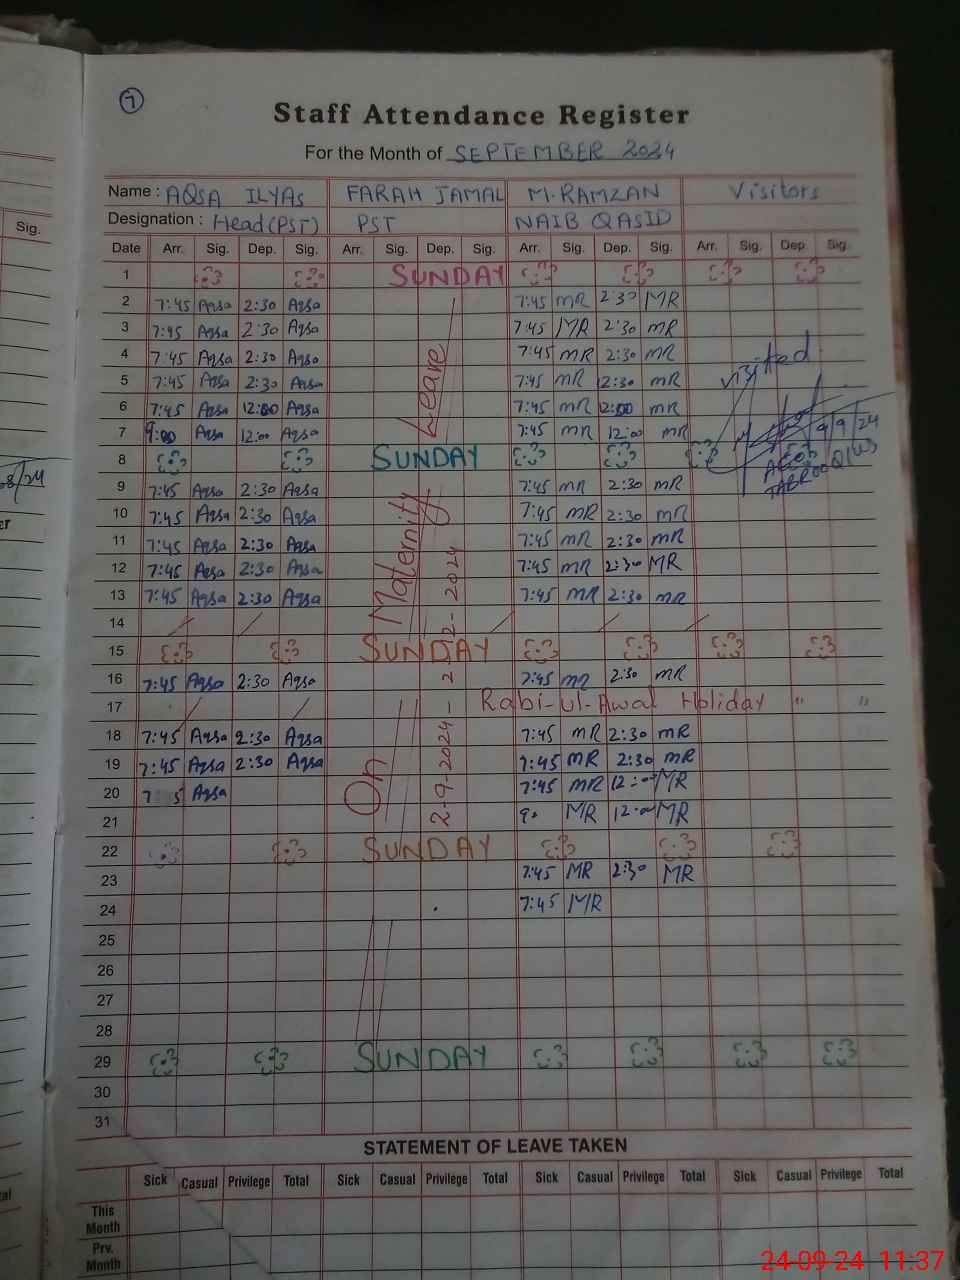 7
Staff Attendance Register
For the Month of SEPTEMBER 2024
Name : AQSA ILYAS FARAH JAMAL M.RAMZAN Visitors
Designation : Head(PST) PST NAIB QASID
Sig.
Date Arr. Sig. Dep. Sig. Arr. Sig. Dep. Sig. Arr. Sig. Dep. Sig. Arr. Sig. Dep. Sig.
1 SUNDAY
2 7:45 Aqsa 2:30 Aqsa 7:45 MR 2:30 MR
3 7:45 Aqsa 2:30 Aqsa 7:45 MR 2:30 MR
4 7:45 Aqsa 2:30 Aqsa 7:45 MR 2:30 MR
5 7:45 Aqsa 2:30 Aqsa 7:45 MR 2:30 MR
6 7:45 Aqsa 12:00 Aqsa 7:45 MR 12:00 MR
7 9:00 Aqsa 12:00 Aqsa 7:45 MR 12:00 MR
visited
9/9/24
8 SUNDAY
9 7:45 Aqsa 2:30 Aqsa 7:45 MR 2:30 MR
10 7:45 Aqsa 2:30 Aqsa 7:45 MR 2:30 MR
11 7:45 Aqsa 2:30 Aqsa 7:45 MR 2:30 MR
12 7:45 Aqsa 2:30 Aqsa 7:45 MR 2:30 MR
13 7:45 Aqsa 2:30 Aqsa 7:45 MR 2:30 MR
14
15 SUNDAY
16 7:45 Aqsa 2:30 Aqsa 7:45 MR 2:30 MR
17 Rabi-ul-Awal Holiday " "
18 7:45 Aqsa 2:30 Aqsa 7:45 MR 2:30 MR
19 7:45 Aqsa 2:30 Aqsa 7:45 MR 2:30 MR
20 7 5 Aqsa 7:45 MR 12:00 MR
21 9 MR 12:00 MR
22 SUNDAY
23 7:45 MR 2:30 MR
24 7:45 MR
25
26
27
28
29 SUNDAY
30
31
On Maternity Leave
2-9-2024
STATEMENT OF LEAVE TAKEN
Sick Casual Privilege Total Sick Casual Privilege Total Sick Casual Privilege Total Sick Casual Privilege Total
This
Month
Prv.
Month
24-09-24 11:37